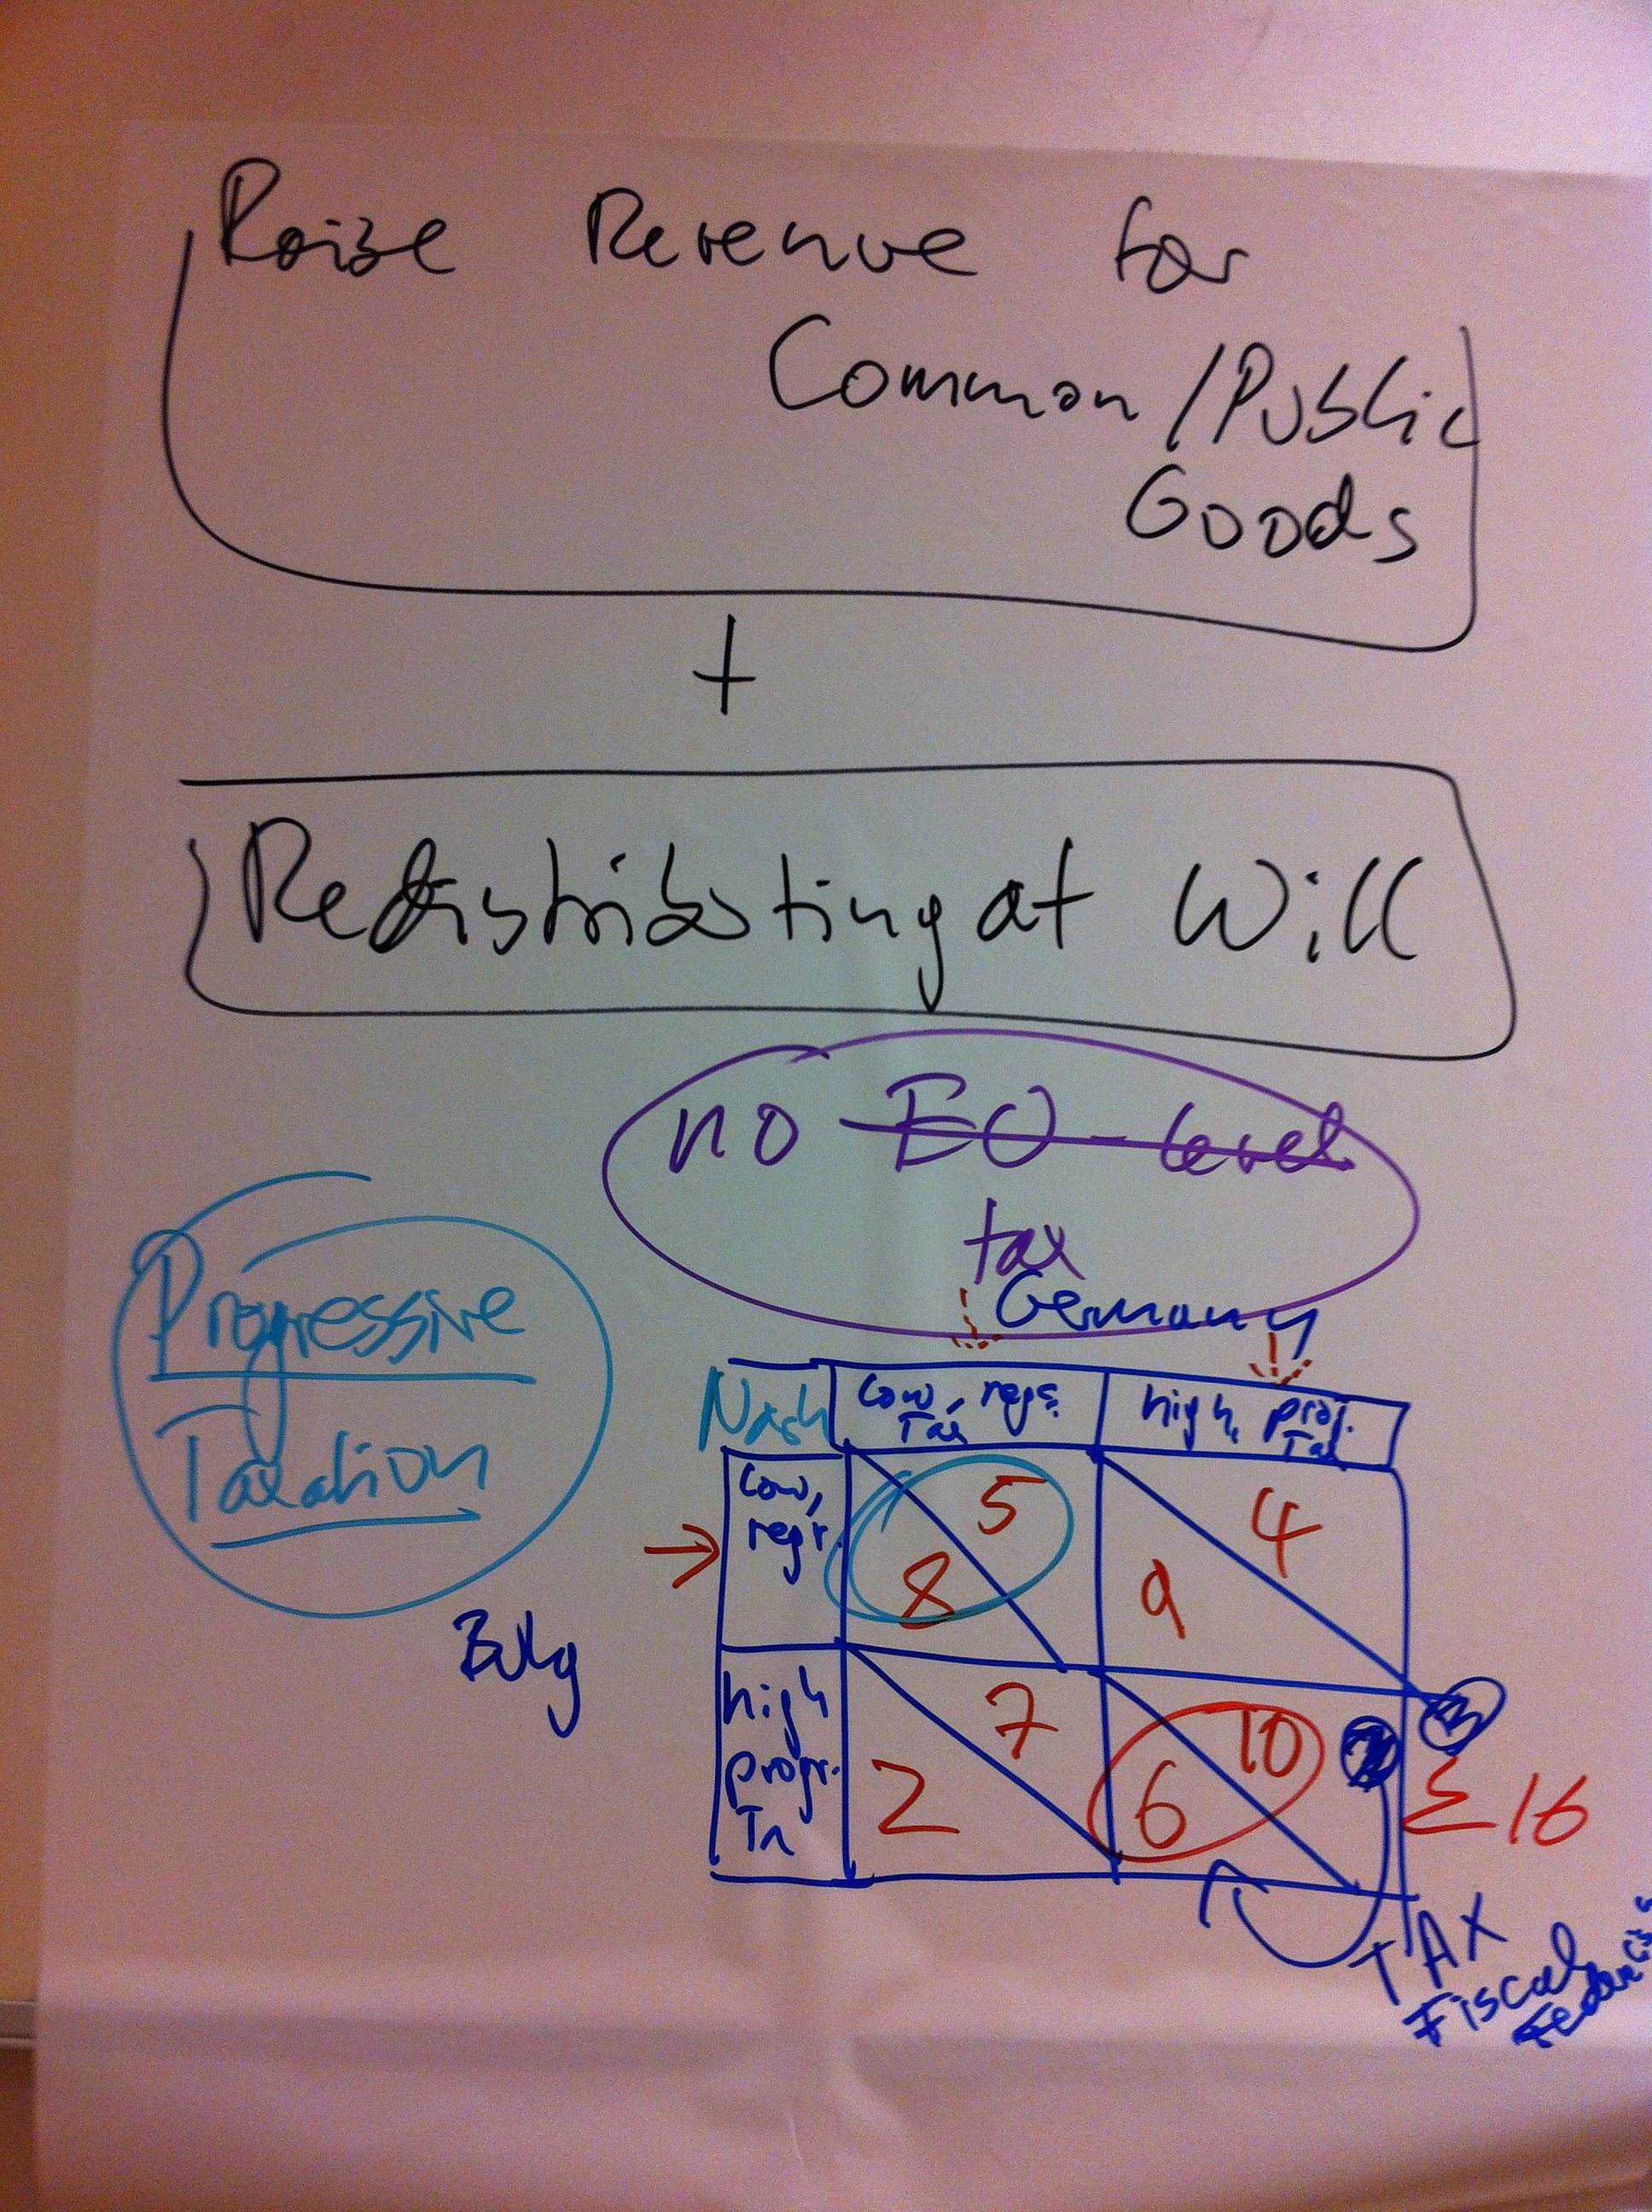 Raise Revenue for
Common/Public
Goods
+
Redistributing at Will
no EU-level
tax
Progressive
Taxation
Germany
Nash
low, regr.
Tax
high, prog.
Tax
low,
regr.
5
8
4
9
Bulg
high
progr.
7
2
10
6
3
Σ 16
TAX
Fiscal